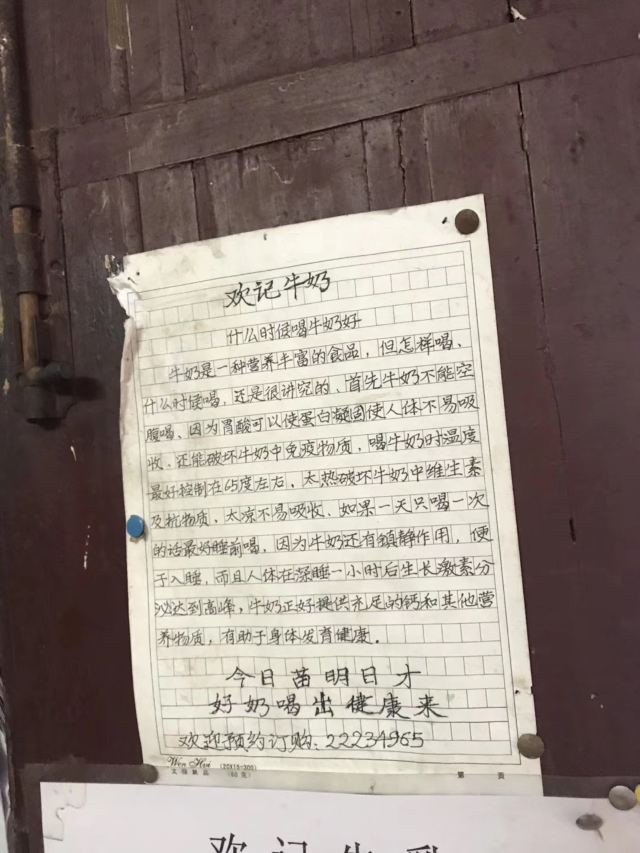 欢记牛奶
什么时候喝牛奶好
牛奶是一种营养丰富的食品，但怎样喝、
什么时候喝，还是很讲究的、首先牛奶不能空
腹喝、因为胃酸可以使蛋白凝固使人体不易吸
收、还能破坏牛奶中免疫物质，喝牛奶时温度
最好控制在65度左右，太热破坏牛奶中维生素
及抗物质，太凉不易吸收、如果一天只喝一次
的话最好睡前喝，因为牛奶还有鎮静作用，便
于入睡，而且人体在深睡一小时后生长激素分
泌达到高峰，牛奶正好提供充足的钙和其他营
养物质，有助于身体发育健康．
今日苗明日才
好奶喝出健康来
欢迎预约订购：22234965
Wen Hui (20X15=300)
(60克) 第 页
欢记牛